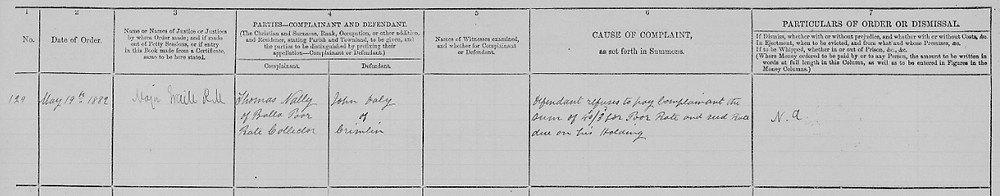 1
2
3
4
5
6
7
No.
Date of Order.
Name or Names of Justice or Justices
by whom Order made; and if made
out of Petty Sessions, or if entry
in this Book made from a Certificate,
same to be here stated.
PARTIES—COMPLAINANT AND DEFENDANT.
(The Christian and Surnames, Rank, Occupation, or other addition,
and Residence, stating Parish and Townland, to be given, and
the parties to be distinguished by prefixing their
appellation—Complainant or Defendant.)
Complainant.
Defendant.
Names of Witnesses examined,
and whether for Complainant
or Defendant.
CAUSE OF COMPLAINT,
as set forth in Summons.
PARTICULARS OF ORDER OR DISMISSAL.
If Dismiss, whether with or without prejudice, and whether with or without Costs, &c.
In Ejectment, when to be evicted, and from what and whose Premises, &c.
If to be Whipped, whether in or out of Prison, &c., &c.
(Where Money ordered to be paid by or to any Person, the amount to be written in
words at full length in this Column, as well as to be entered in Figures in the
Money Column.)
129
May 19th 1882
Major R.M
Thomas Nally
of Balla Poor
Rate Collector
John Daly
of
Crimlin
Defendant refuses to pay Complainant the
sum of for Poor Rate and seed Rate
due on his Holding
N. A.